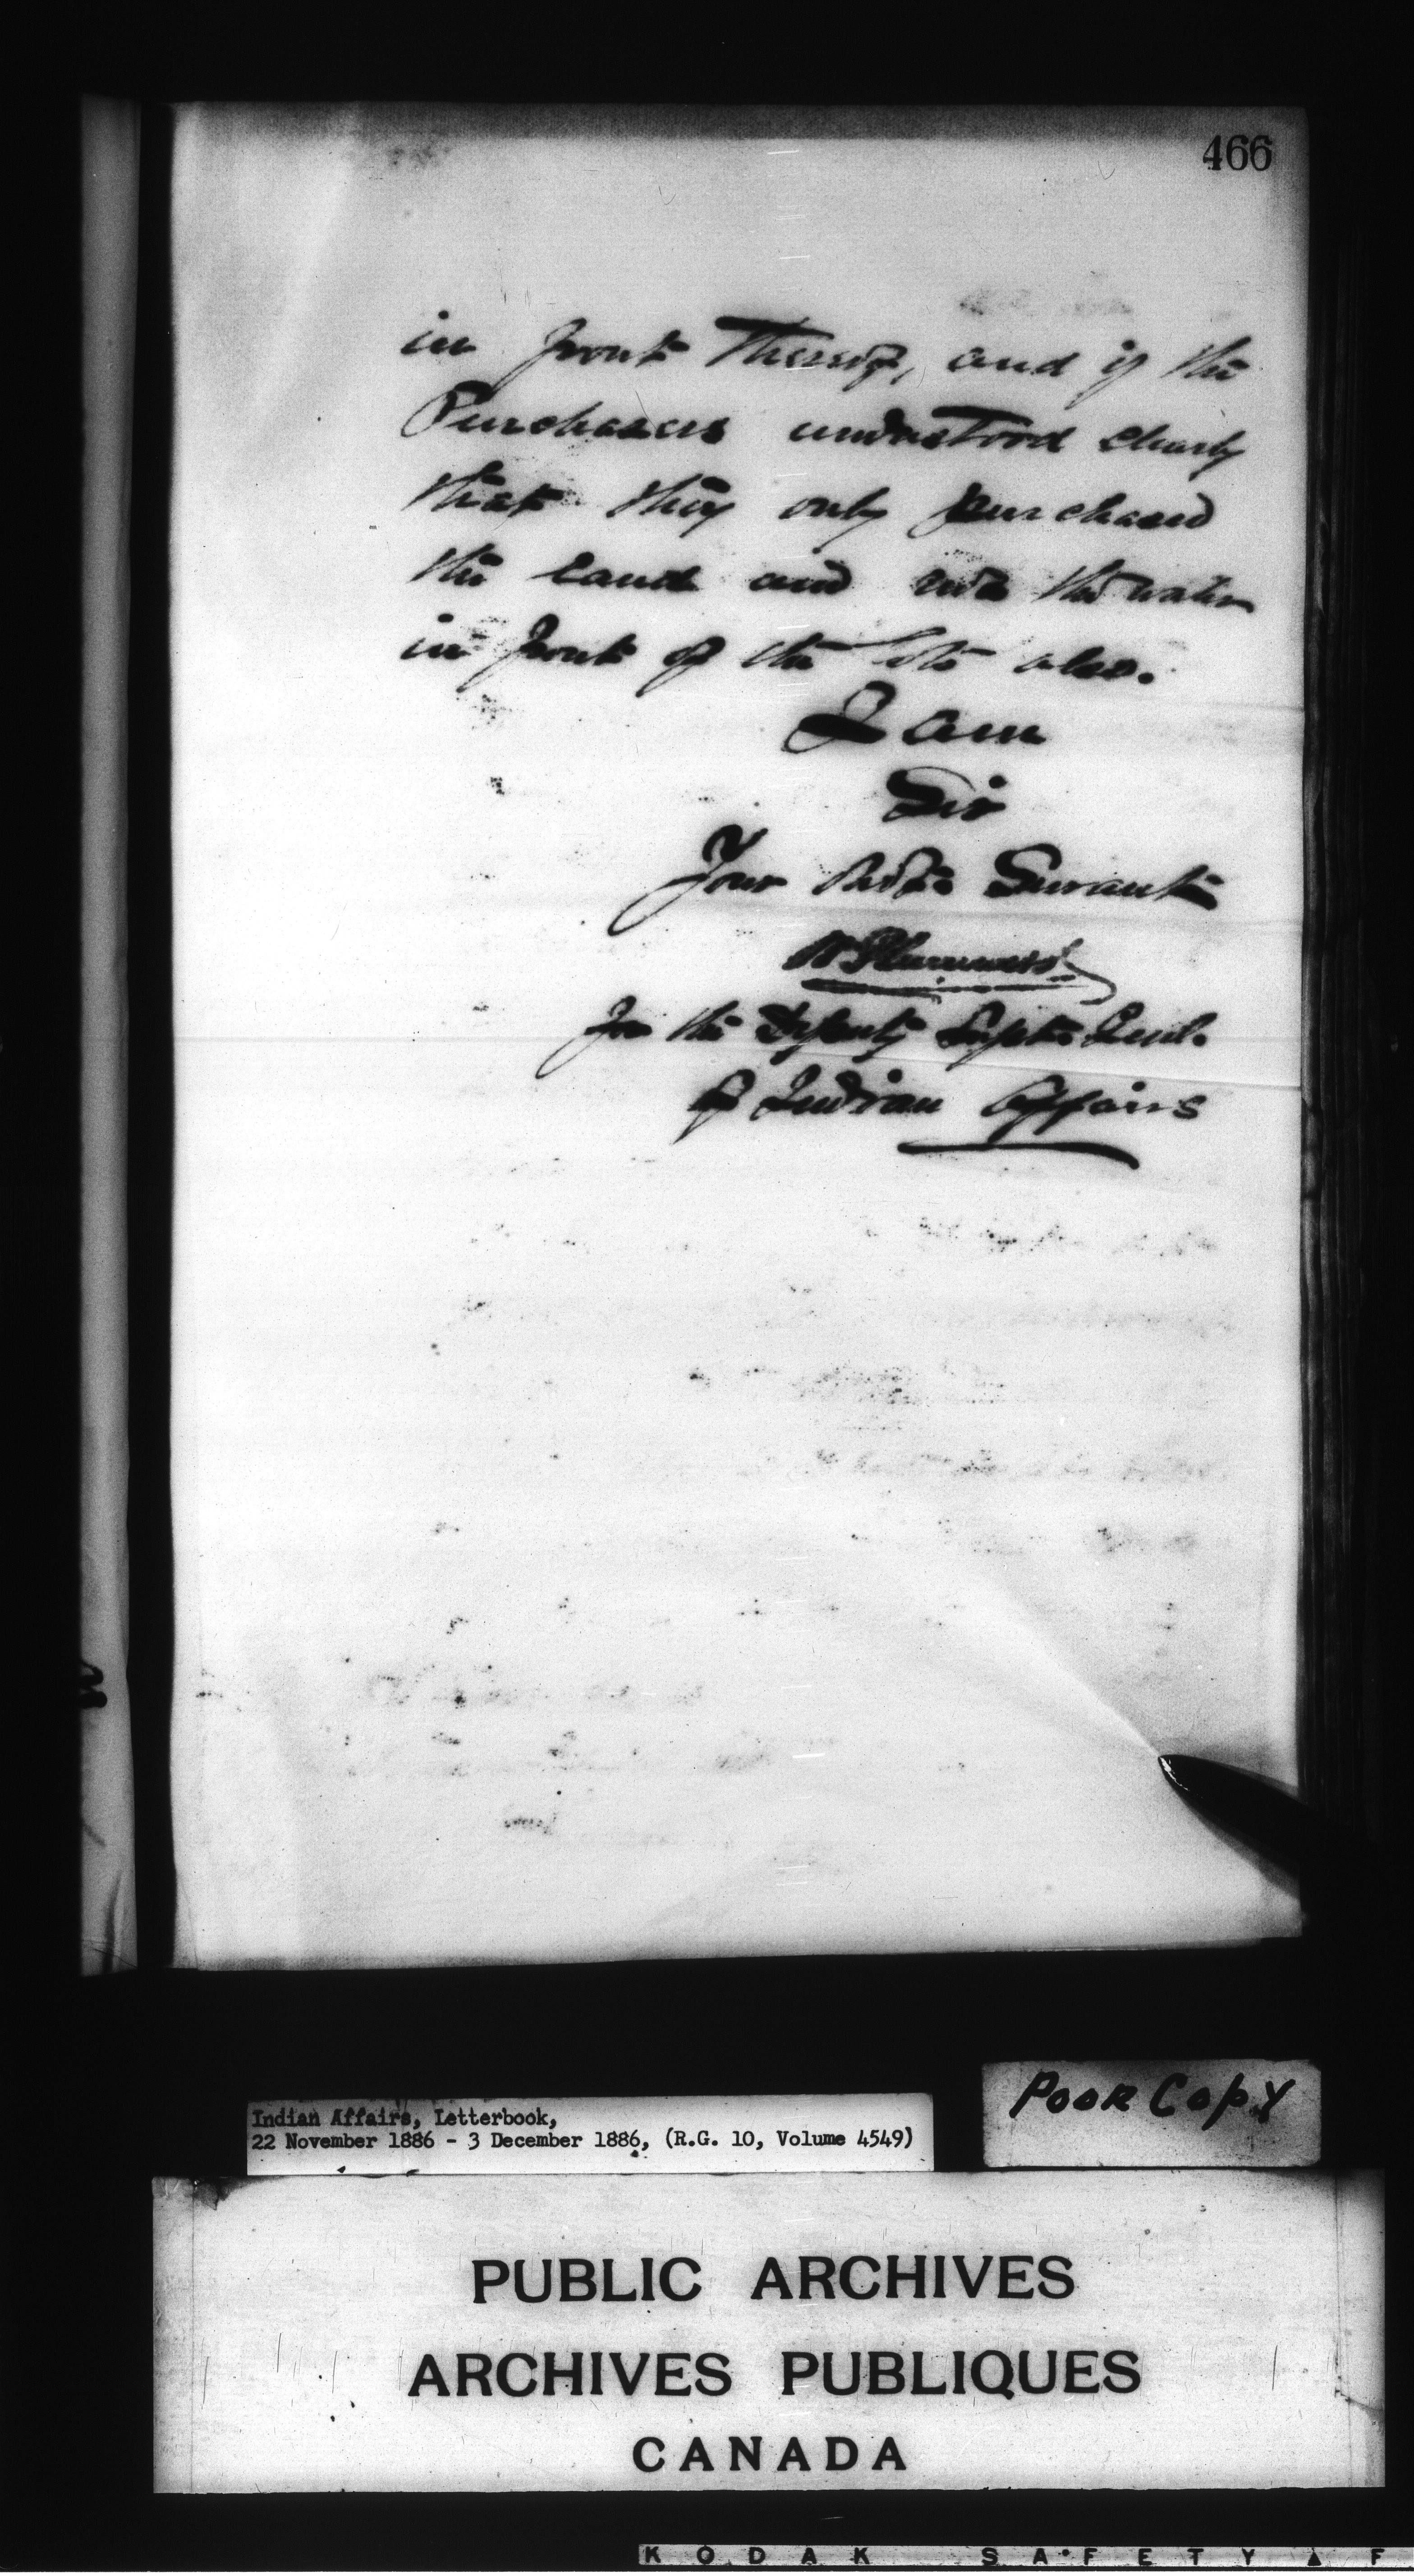 466
in front thereof, and if the
Purchasers understood clearly
that they only purchased
the land and not the water
in front of the lots also.
I am
Sir
Your Obdt. Servant
W Plummer
for the Deputy Supt. Genl.
of Indian Affairs
Poor Copy
Indian Affairs, Letterbook,
22 November 1886 - 3 December 1886, (R.G. 10, Volume 4549)
PUBLIC ARCHIVES
ARCHIVES PUBLIQUES
CANADA
KODAK SAFETY F